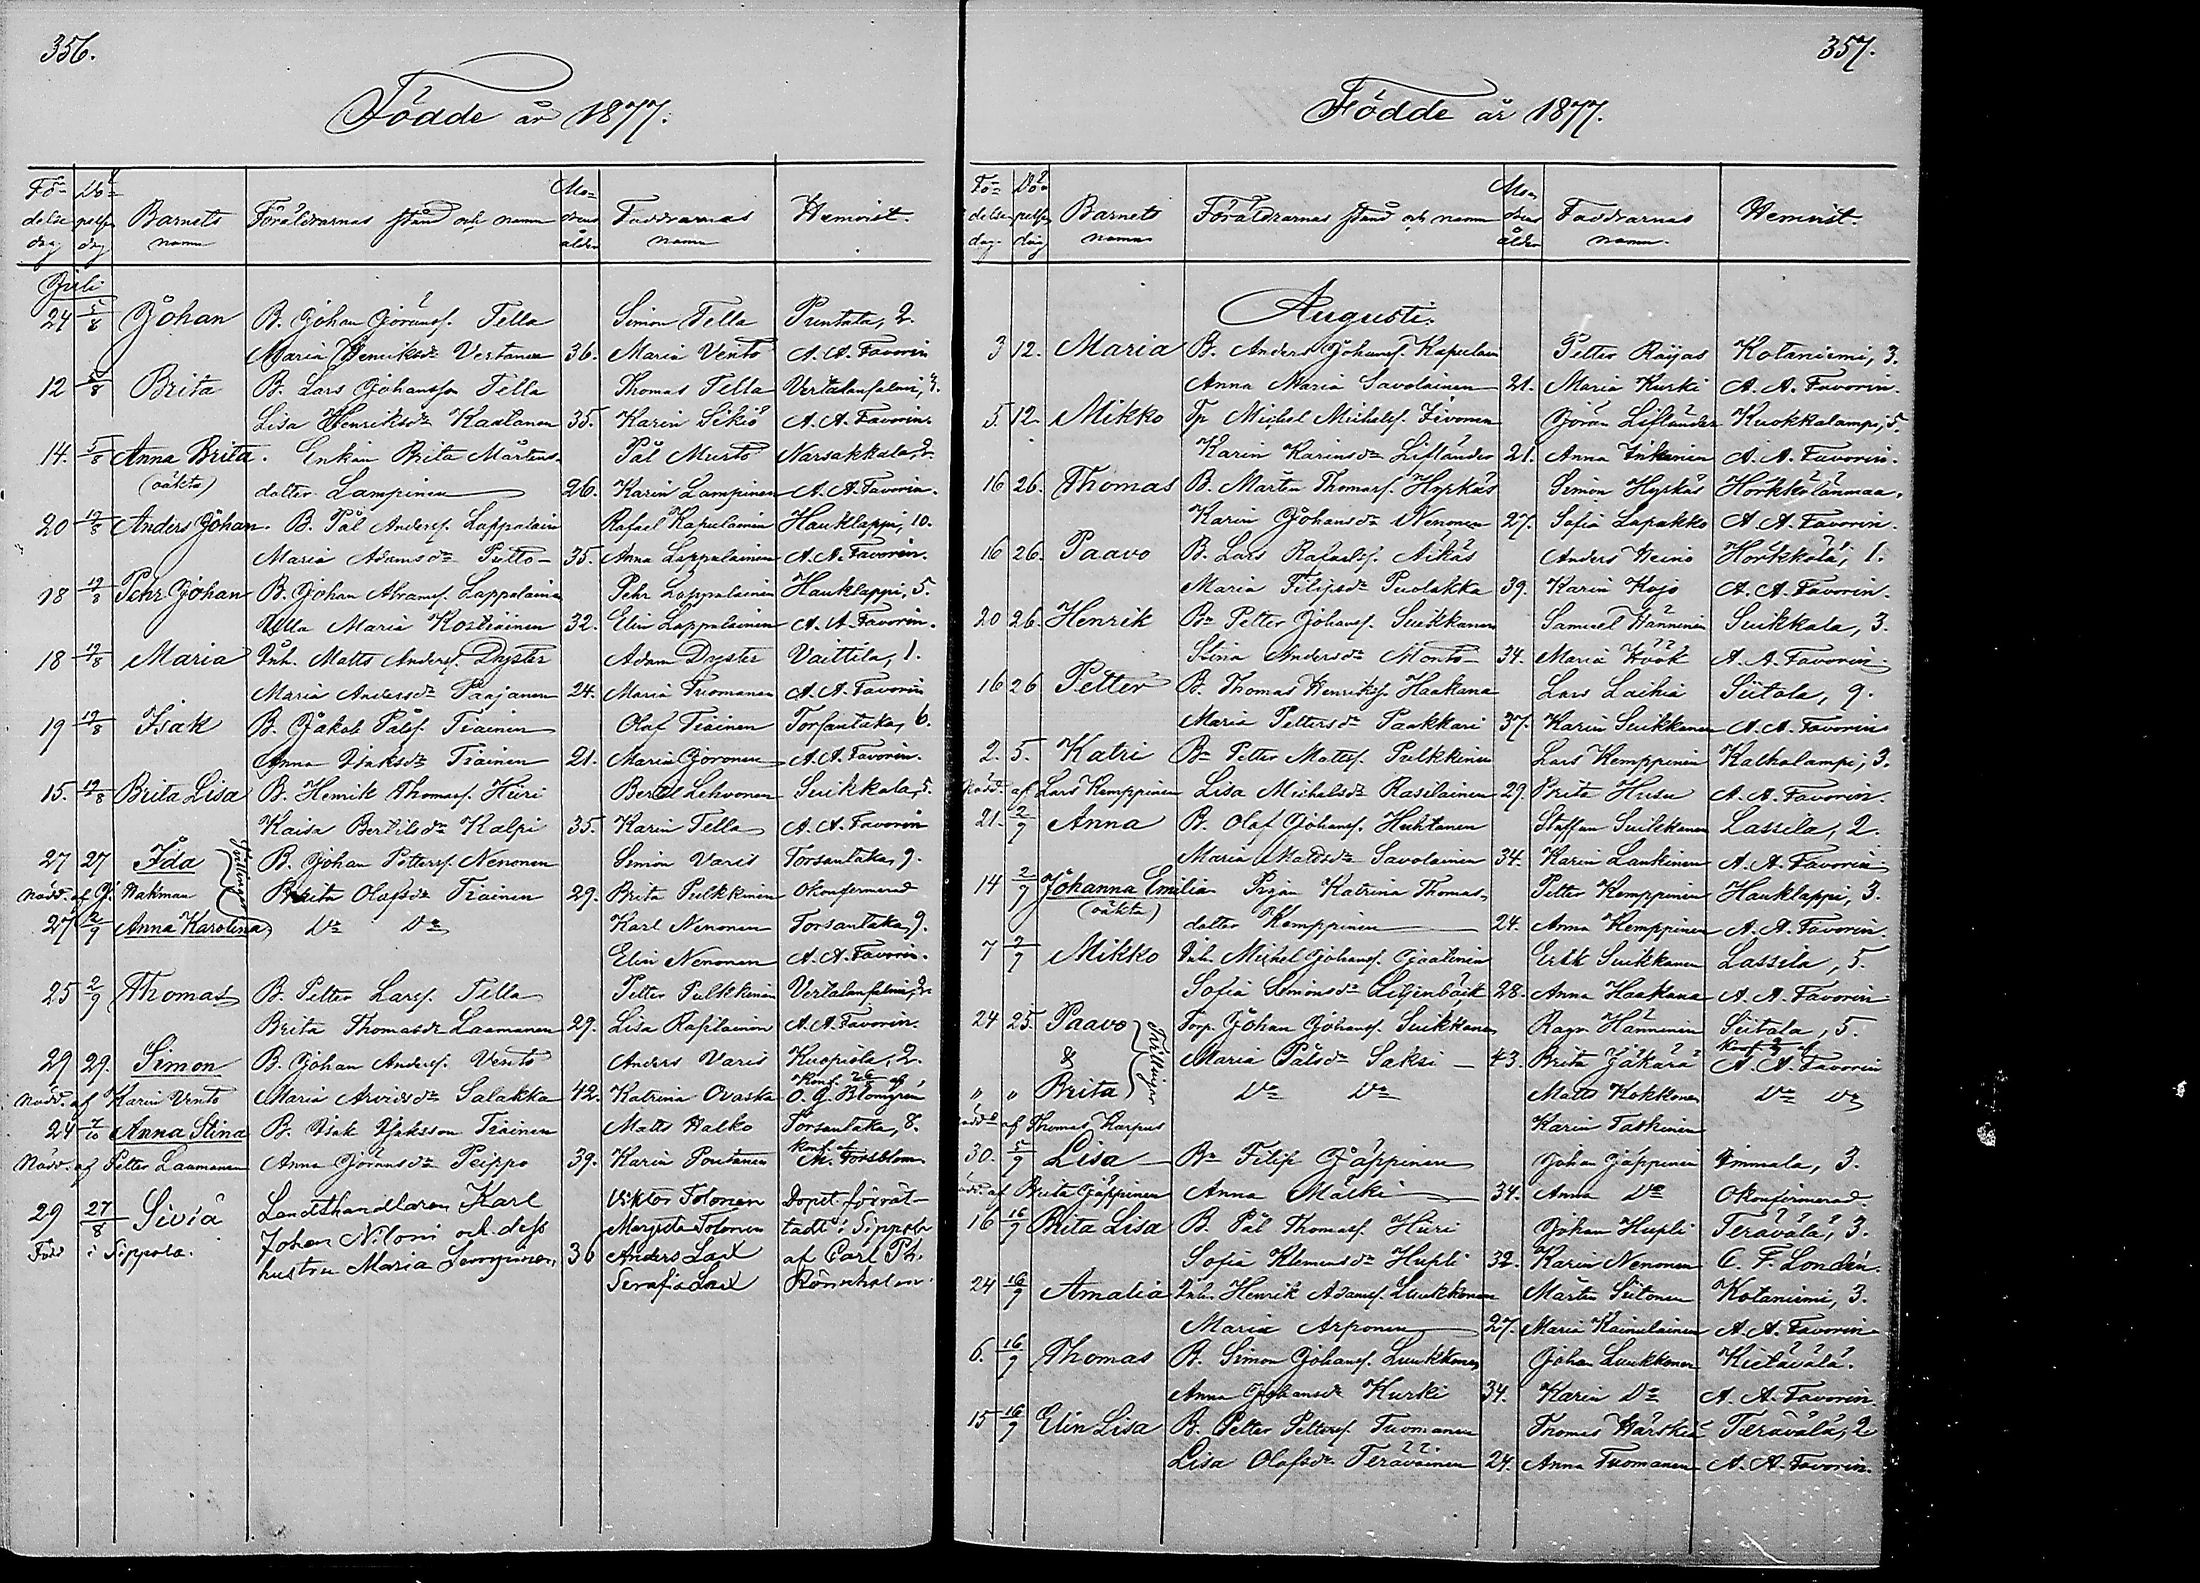 356.
Födde år 1877.
Fö- Dö- Mo-
delse pelse Barnets Föräldrarnas stånd och namn drens Faddrarnas Hemvist.
dag dag namn ålder namn
Juli
24 5/8 Johan B. Johan Göransf. Tella Simon Tella Puntala, 2.
Maria Henriksdr Vertanen 36. Maria Vento A. A. Favorin
12 5/8 Brita B. Lars Johansson Tella Thomas Tella Vertalansalmi, 3.
Lisa Henriksdr Kaatanen 35. Karin Sikiö A. A. Favorin.
14. 5/8 Anna Brita. Enkan Brita Mårtens- Pål Murto Narsakkala, 2.
(oäkta) dotter Lampinen 26. Karin Lampinen A. A. Favorin.
20 12/8 Anders Johan. B. Pål Andersf. Lappalain Rafael Kapulainen Hauklappi, 10.
Maria Adamsdr Putto- 35. Anna Lappalainen A. A. Favorin.
18 19/8 Pehr Johan B. Johan Abramsf. Lappalainen Pehr Lappalainen Hauklappi, 5.
Ulla Maria Kostiainen 32. Elin Lappalainen A. A. Favorin.
18 19/8 Maria Inh. Matts Andersf. Dyster Adam Dyster Vaittila, 1.
Maria Andersdr Paajanen 24. Maria Tuomanen A. A. Favorin
19 19/8 Isak B. Jakob Pålsf. Tiainen Olof Tiainen Torsantaka, 6.
Anna Isaksdr Tiainen 21. Maria Joronen A. A. Favorin.
15. 19/8 Brita Lisa B. Henrik Thomasf. Hüri Bertil Lehvonen Suikkala, 5.
Kaisa Bertilsdr Kalpi 35. Karin Tella A. A. Favorin
27 27 Ida Tvillingar B. Johan Pettersf. Nenonen Simon Varis Torsantaka, 9.
Nödd. af J. Wakman Brita Olofsdr Tiainen 29. Brita Pulkkinen Okonfirmerad
27 2/9 Anna Karolina Do Do Karl Nenonen Torsantaka, 9.
Elin Nenonen A. A. Favorin.
25 2/9 Thomas B. Petter Larsf. Tella Petter Pulkkinen Vertalansalmi, 2.
Brita Thomasdr Laamanen 29. Lisa Rasilainen A. A. Favorin.
29 29. Simon B. Johan Andersf. Vento Anders Varis Kuopiola, 2.
Nödd. af Karin Vento Maria Arvidsdr Salakka 42. Katrina Ovaska Konf. 26 af O. J. Blomgren
24 7/10 Anna Stina B. Isak Isaksson Tiainen Matts Halko Torsantaka, 8.
Nödd. af Petter Laamanen Anna Göransdr Peippo 39. Karin Poutanen konf. af M. Forsblom
29 27/8 Sivia Landthandlaren Karl Viktor Tolonen Dopet förrät-
Född i Sippola. Johan Niloni och dess Margreta Tolonen tadt i Sippola
hustru Maria 36 Anders Lax af Carl Ph.
Serafia Lax

357.
Födde år 1877.
Fö- Dö- Mo-
delse pelse Barnets Föräldrarnas stånd och namn drens Faddrarnas Hemvist.
dag. dag namn ålder namn.
Augusti.
3 12. Maria B. Anders Johansf. Kapulain Petter Raijas Kotaniemi, 3.
Anna Maria Savolainen 21. Maria Kurki A. A. Favorin.
5. 12. Mikko Tp Michel Michelsf. Zivonen Göran Liflander Kuokkalampi, 5.
Karin Karinsdr Liflander 21. Anna Inkinen A. A. Favorin.
16 26. Thomas B. Mårten Thomasf. Hyrkäs Simon Hyrkäs Horkkolänmaa.
Karin Johansdr Nenonen 27. Sofia Lapakko A. A. Favorin.
16 26. Paavo B. Lars Rafaelsf. Äikäs Anders Heino Horkkälä, 1.
Maria Filipsdr Puolakka 39. Karin Kojo A. A. Favorin.
20 26. Henrik Bn Petter Johansf. Suikkanen Samuel Hänninen Suikkala, 3.
Stina Andersdr Monto- 34. Maria Höök A. A. Favorin
16 26 Petter B. Thomas Henriksf. Haakana Lars Laihia Siitala, 9.
Maria Pettersdr Paakkari 37. Karin Suikkanen A. A. Favorin
2. 5. Katri Bn Petter Mattsf. Pulkkinen Lars Kemppinen Kalkalampi, 3.
Nödd. af Lars Kemppinen Lisa Michelsdr Rasilainen 29. Brita Husu A. A. Favorin.
21. 2/9 Anna B. Olof Johansf. Huhtanen Staffan Suikkanen Lassila, 2.
Maria Mattsdr Savolainen 34. Karin Laukinen A. A. Favorin
14 2/9 Johanna Emilia Pigan Katrina Thomas- Petter Kemppinen Hauklappi, 3.
(oäkta) dotter Kemppinen 24. Anna Kemppinen A. A. Favorin.
7 2/9 Mikko Inh. Michel Johansf. Jaatinen Erik Suikkanen Lassila, 5.
Sofia Simonsdr Liljenbäck 28. Anna Haakana A. A. Favorin
24 25. Paavo Tvillingar Torp. Johan Johansf. Suikkanen Ragn. Hänninen Siitala, 5.
& Maria Pålsdr Saksi - 43. Brita Jäkärä Konf. af A. A. Favorin
" " Brita Do Do Matts Kokkonen Do Do
Nödd. af Thomas Karpus Karin Taskinen
30. 5/9 Lisa Bn Filip Jäppinen Johan Jäppinen Immala, 3.
Nödd. af Brita Jäppinen Anna Mälki 34. Anna Do Okonfirmerad
16 16/9 Brita Lisa B. Pål Thomasf. Hüri Johan Hupli Terävälä, 3.
Sofia Klemensdr Hupli 32. Karin Nenonen C. F. Londén.
24 16/9 Amalia Inh. Henrik Adamsf. Luukkonen Mårten Siitonen Kotaniemi, 3.
Maria Arponen 27. Maria Kainulainen A. A. Favorin
6. 16/9 Thomas B. Simon Johansf. Luukkonen Johan Luukkonen Kietävälä.
Anna Johansdr Kurki 34. Karin Do A. A. Favorin
15 16/9 Elin Lisa B. Petter Pettersf. Tuomanen Thomas Härskiä Terävälä, 2
Lisa Olofsdr Teräväinen 24. Anna Tuomanen A. A. Favorin.